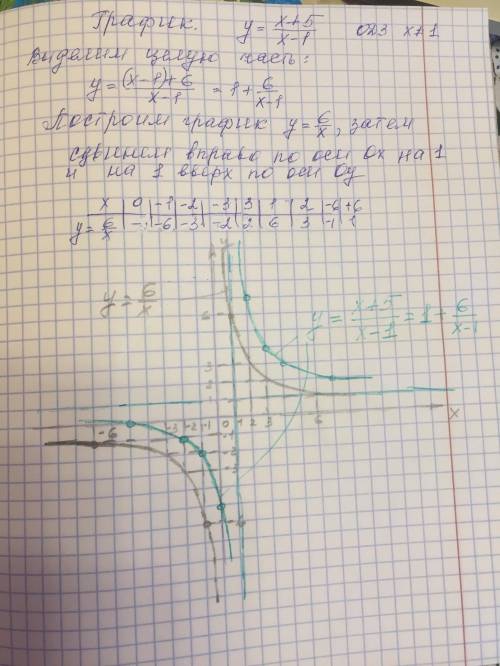 График. y = x+5/x-1 ОДЗ x≠1
Выделим целую часть:
y = (x-1)+6/x-1 = 1 + 6/x-1
Построим график y = 6/x, затем
сдвинем вправо по оси Ox на 1
и на 1 вверх по оси Oy
x | 0 | -1 | -2 | -3 | 3 | 1 | 2 | -6 | +6
y = 6/x | - | -6 | -3 | -2 | 2 | 6 | 3 | -1 | 1
y
y = 6/x
6
y = x+5/x-1 = 1 + 6/x-1
3
2
1
-6 -3 -2 -1 0 1 2 3 6 x
-1
-2
-3